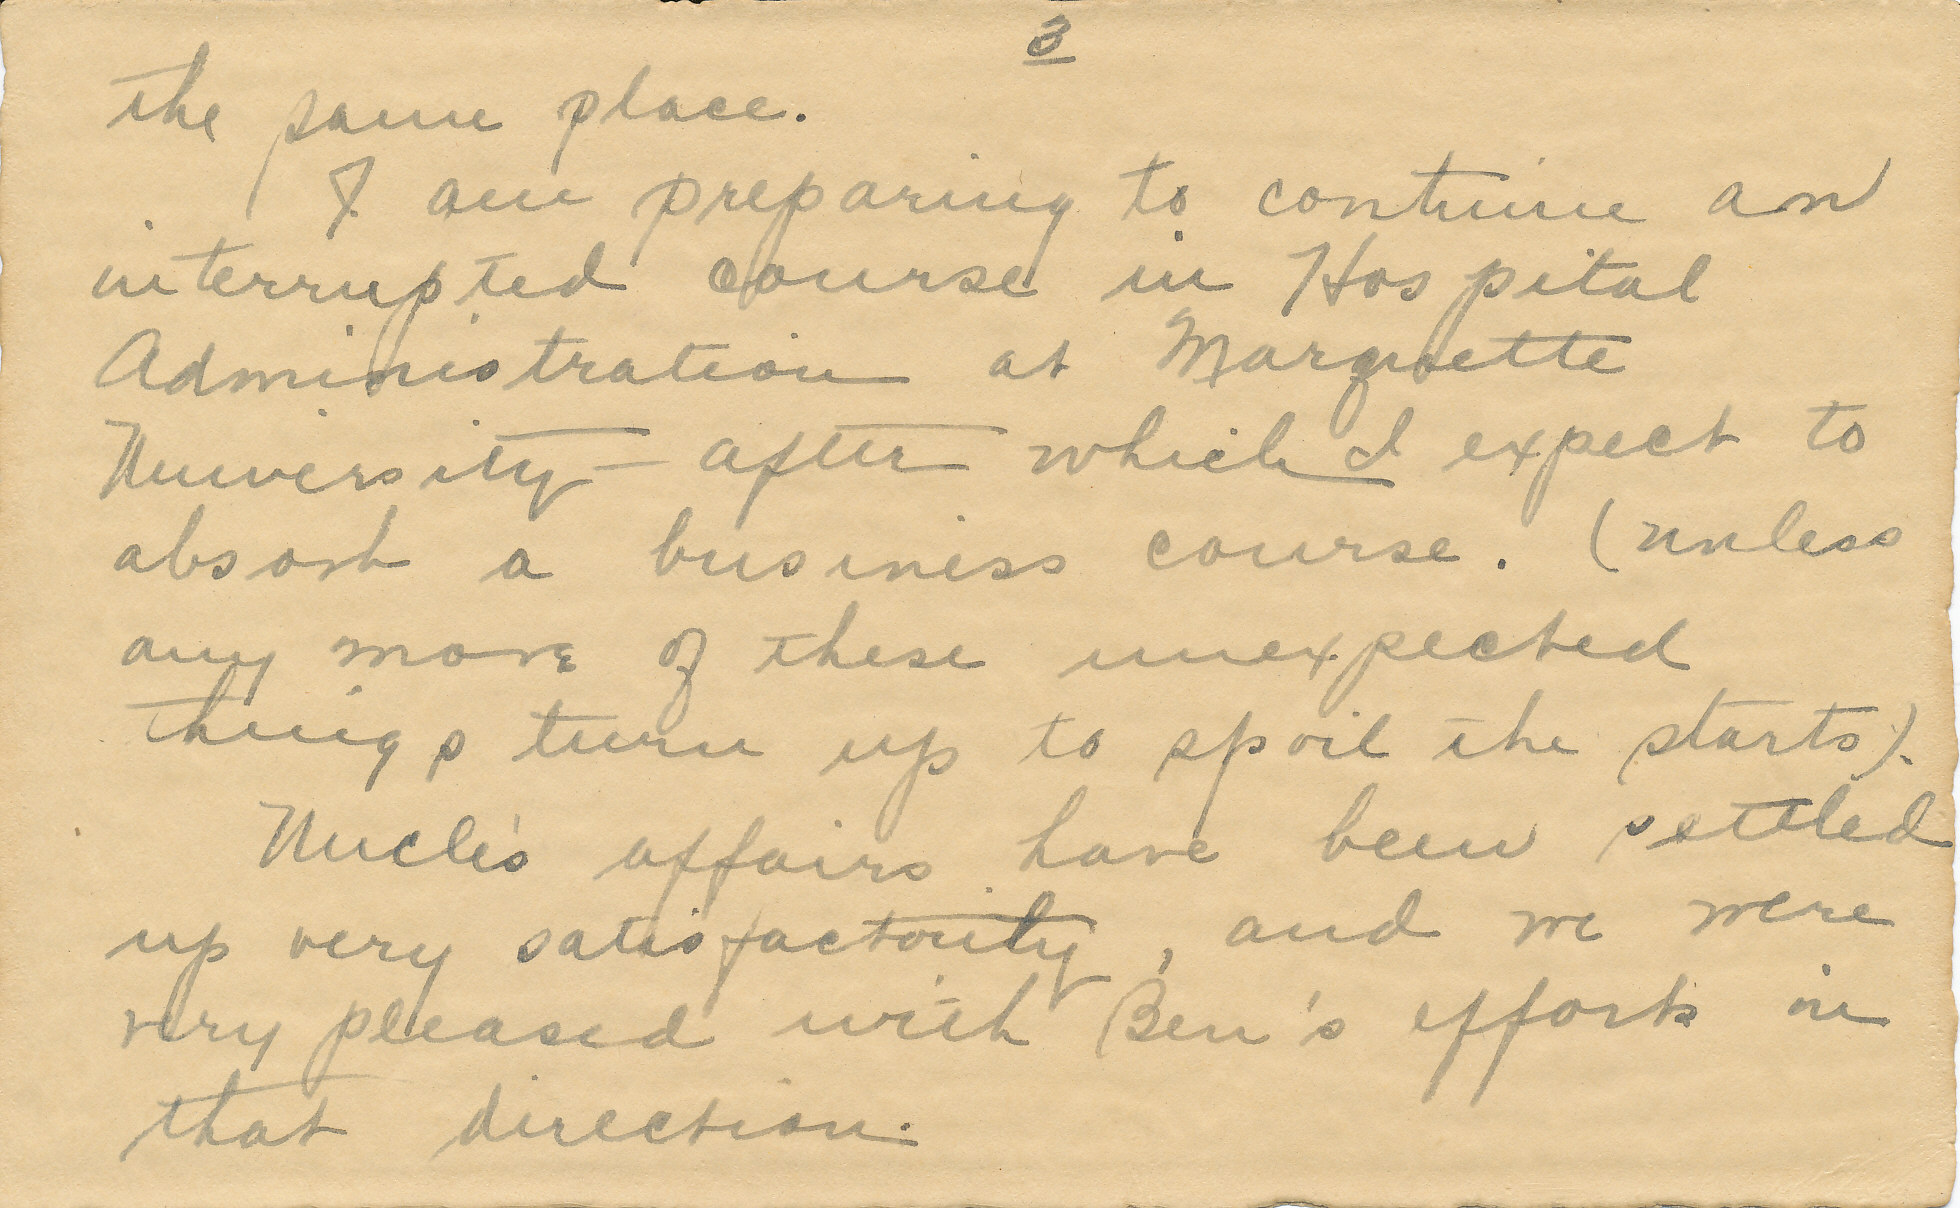 3
the same place.
I am preparing to continue an
interrupted course in Hospital
Administration at Marquette
University — after which I expect to
absorb a business course. (unless
any more of these unexpected
things turn up to spoil the starts).
Uncle's affairs have been settled
up very satisfactorily, and we were
very pleased with Ben's efforts in
that direction.